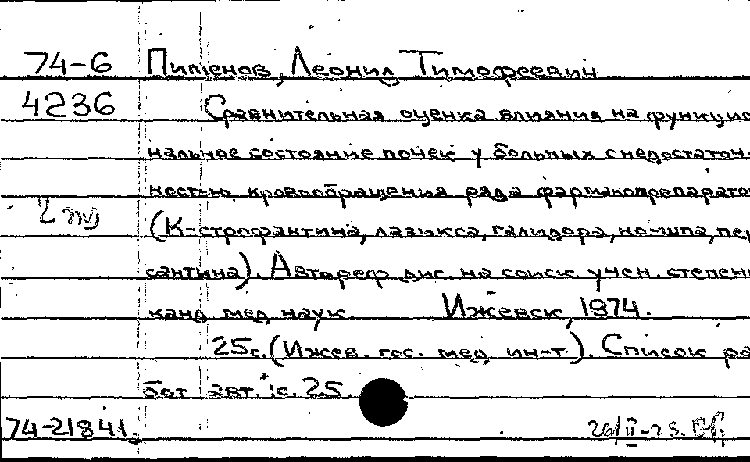 74-6 Пименов, Леонид Тимофеевич
4236 Сравнительная оценка влияния на функцио
нальное состояние почек у больных с недостаточ-
ностью кровообращения ряда фармакопрепарато
(К-строфантина, лазикса, галидора, но-шпа, пер
сантина). Автореф. дис. на соиск. учен. степени
канд. мед. наук. Ижевск, 1974.
25с. (Ижев. гос. мед. ин-т). Список ра
бот авт.: с. 25.
74-21841.